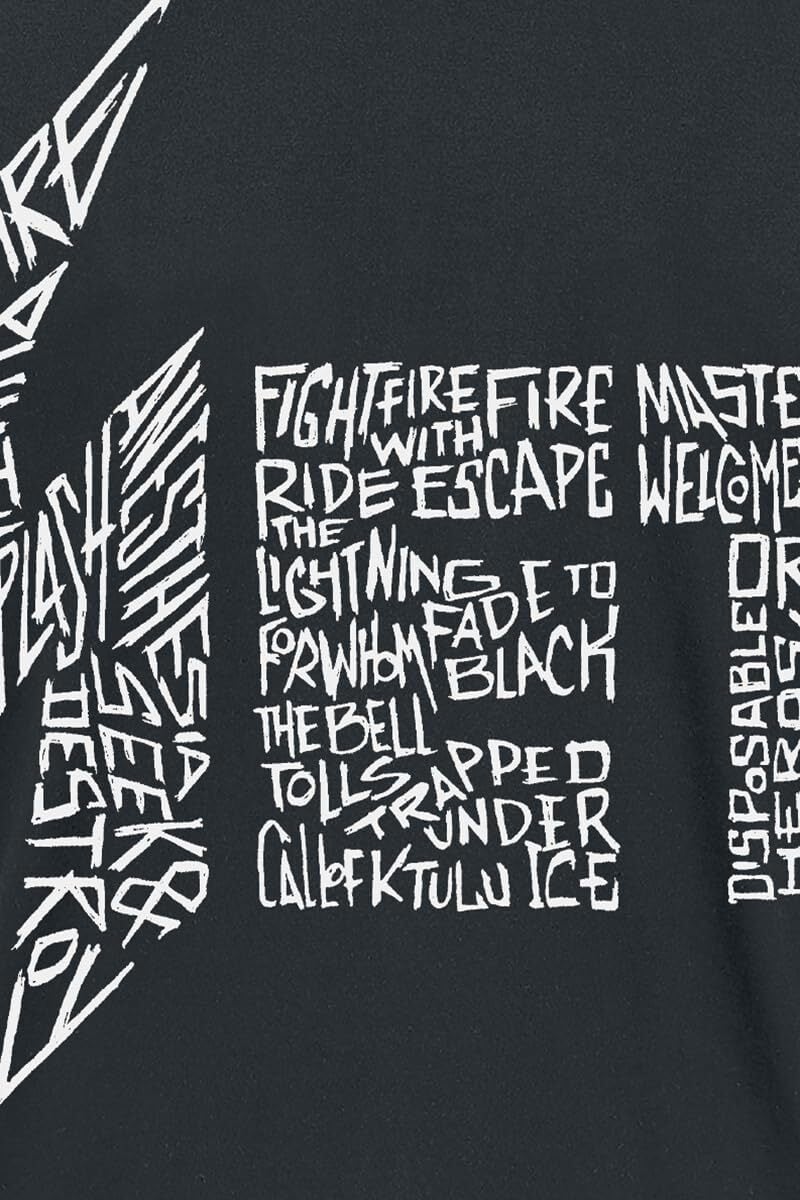 ANESTHESIA
SEEK &
DESTROY
FIGHT FIRE WITH FIRE
RIDE THE LIGHTNING
ESCAPE
FADE TO BLACK
FOR WHOM THE BELL TOLLS
TRAPPED UNDER ICE
CALL OF KTULU
MASTE
WELCOME
OR
DISPOSABLE
HEROS